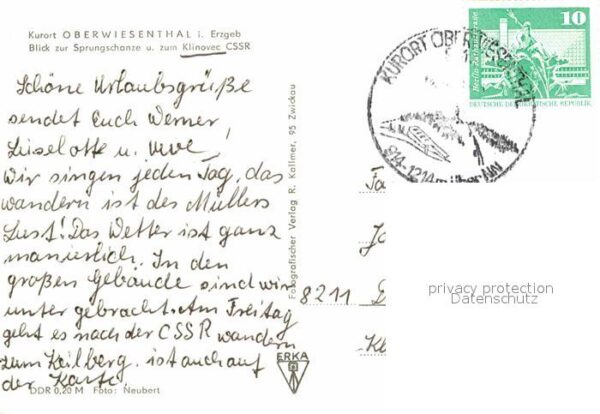 Kurort OBERWIESENTHAL i. Erzgeb
Blick zur Sprungschanze u. zum Klinovec CSSR
Schöne Urlaubsgrüße
sendet Euch Werner,
Lieselotte u. Uwe,
Wir singen jeden Tag, das
wandern ist des Müllers
Lust! Das Wetter ist ganz
manierlich. In den
großen Gebäude sind wir
untergebracht. Am Freitag
geht es nach der CSSR wandern
zum Keilberg. ist auch auf
der Karte.
DDR 0,20 M Foto: Neubert
Fotografischer Verlag R. Kallmer, 95 Zwickau
ERKA
KURORT OBERWIESENTHAL
914-1214 m über NN
10
DEUTSCHE DEMOKRATISCHE REPUBLIK
Fa
8211
privacy protection
Datenschutz